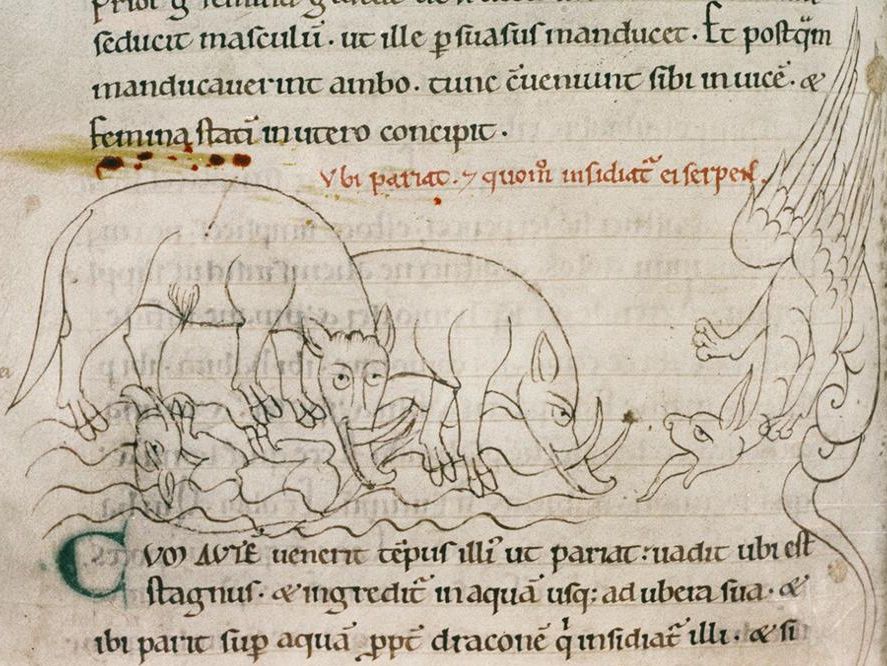 seducit masculū. ut ille ꝑsuasus manducet. Et postq̄m
manducauerint ambo. tunc c̄ueniunt sibi inuicē. &
femina statī in utero concipit.
Vbi pariat. ⁊ quom̄ insidiat᷑ ei serpens.
CVM AVTĒ uenerit tēpus illī ut pariat: uadit ubi est
stagnus. & ingredit᷑ in aquā usq; ad ubera sua. &
ibi parit suꝑ aquā ꝓpt̄ draconē q̇ insidiat᷑ illi. & si